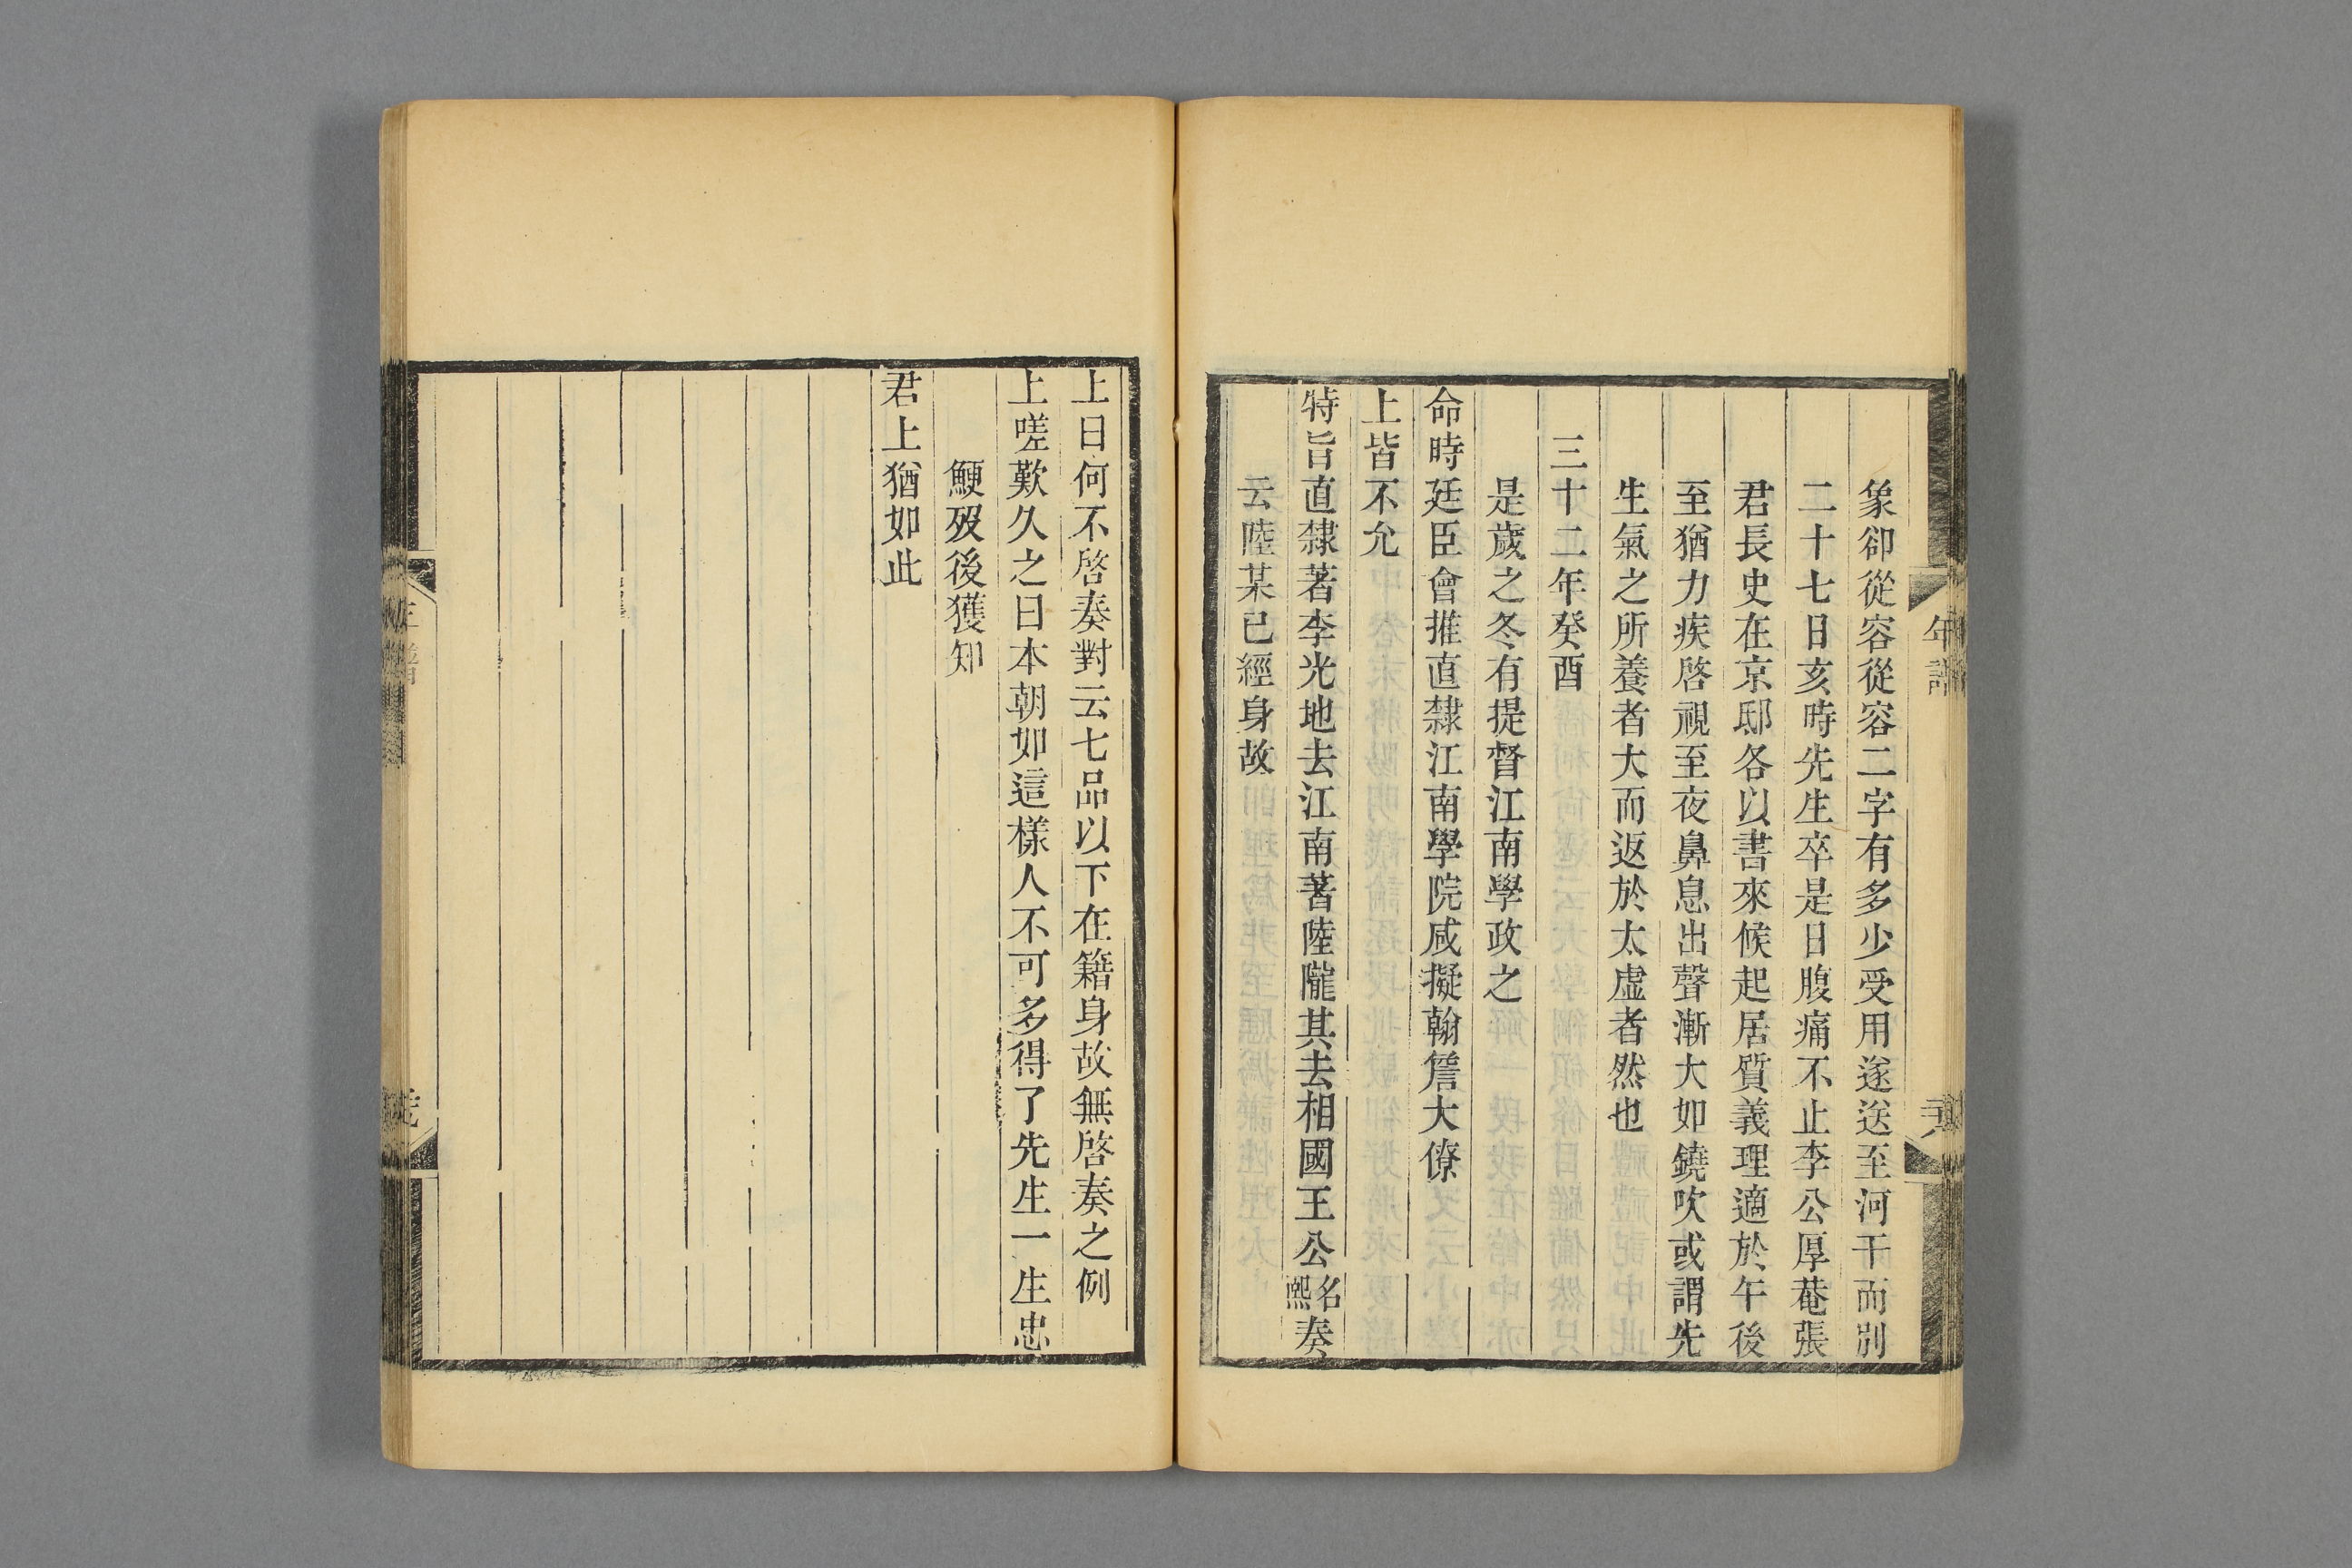 象卻從容從容二字有多少受用遂送至河干而別
二十七日亥時先生卒是日腹痛不止李公厚菴張
君長史在京邸各以書來候起居質義理適於午後
至猶力疾啓視至夜鼻息出聲漸大如鐃吹或謂先
生氣之所養者大而返於太虛者然也
三十二年癸酉
是歲之冬有提督江南學政之
命時廷臣會推直隸江南學院咸擬翰詹大僚
上皆不允
特旨直隸著李光地去江南著陸隴其去相國王公名熙奏
云陸某已經身故
上曰何不啓奏對云七品以下在籍身故無啓奏之例
上嗟歎久之曰本朝如這樣人不可多得了先生一生忠
鯁歿後獲知
君上猶如此
年譜